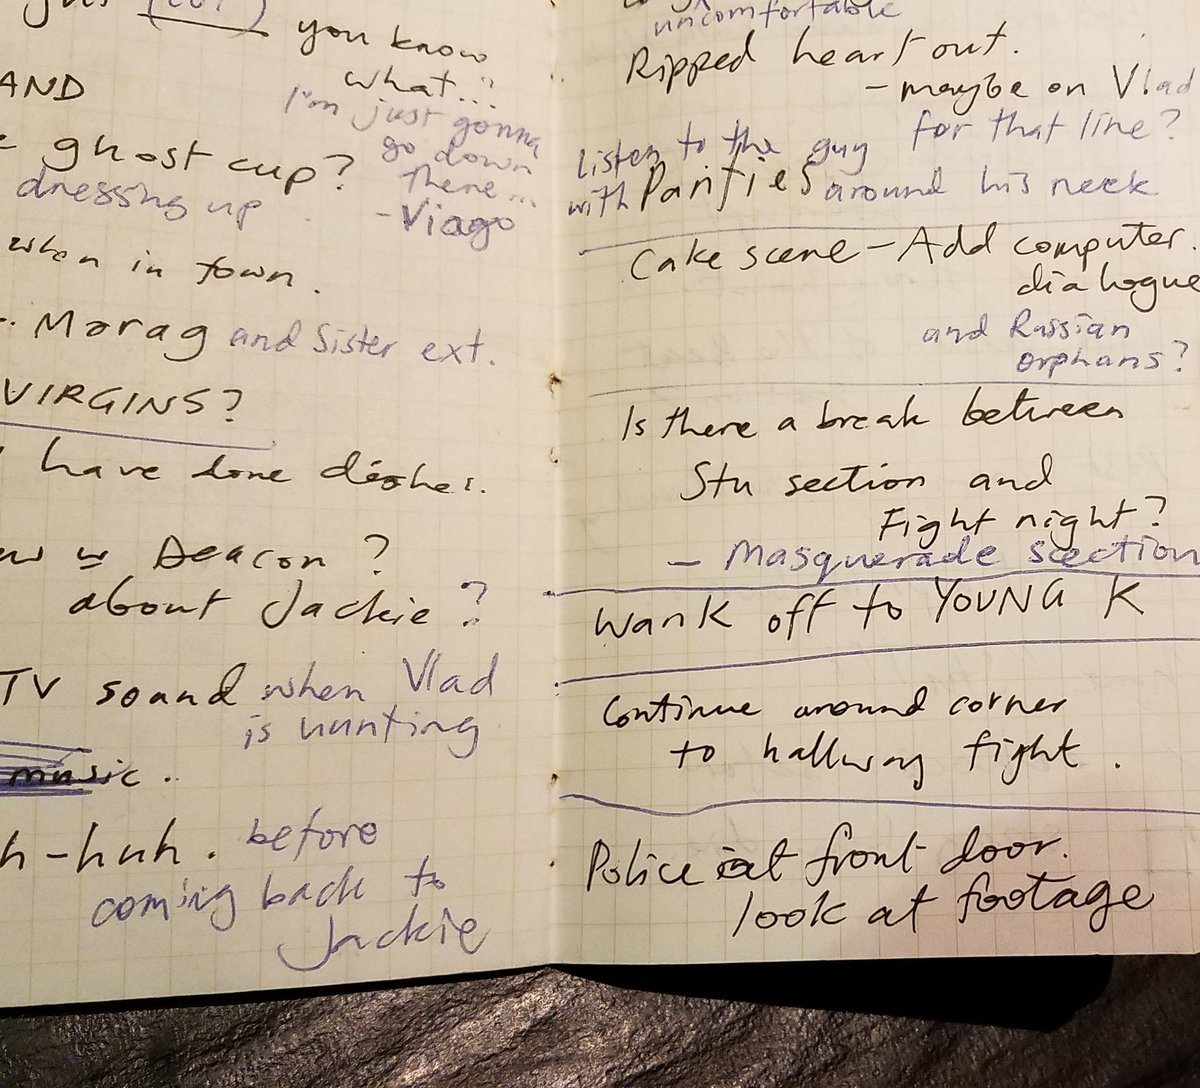 you know
what...?
AND
I'm just gonna
go down
there...
- Viago
ghost cup?
dressing up
when in town.
Morag and Sister ext.
VIRGINS?
have done dishes.
is Deacon?
about Jackie?
TV sound when Vlad
is hunting
music.
h-huh. before
coming back to
Jackie
uncomfortable
Ripped heart out.
- maybe on Vlad
for that line?
listen to the guy
with Panties around his neck
Cake scene - Add computer.
dialogue
and Russian
orphans?
Is there a break between
Stu section and
Fight night?
- Masquerade scection
Wank off to YOUNG K
Continue around corner
to hallway fight.
Police at front door.
look at footage